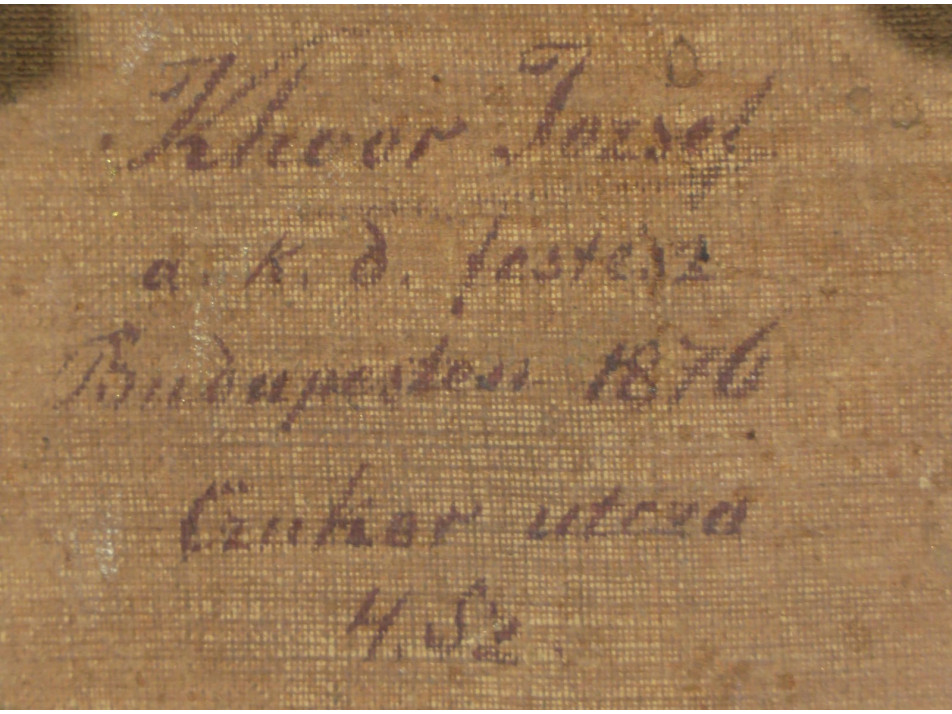 Khoor József
a. k. d. festész
Budapesten 1876
Czukor utcza
4. Sz